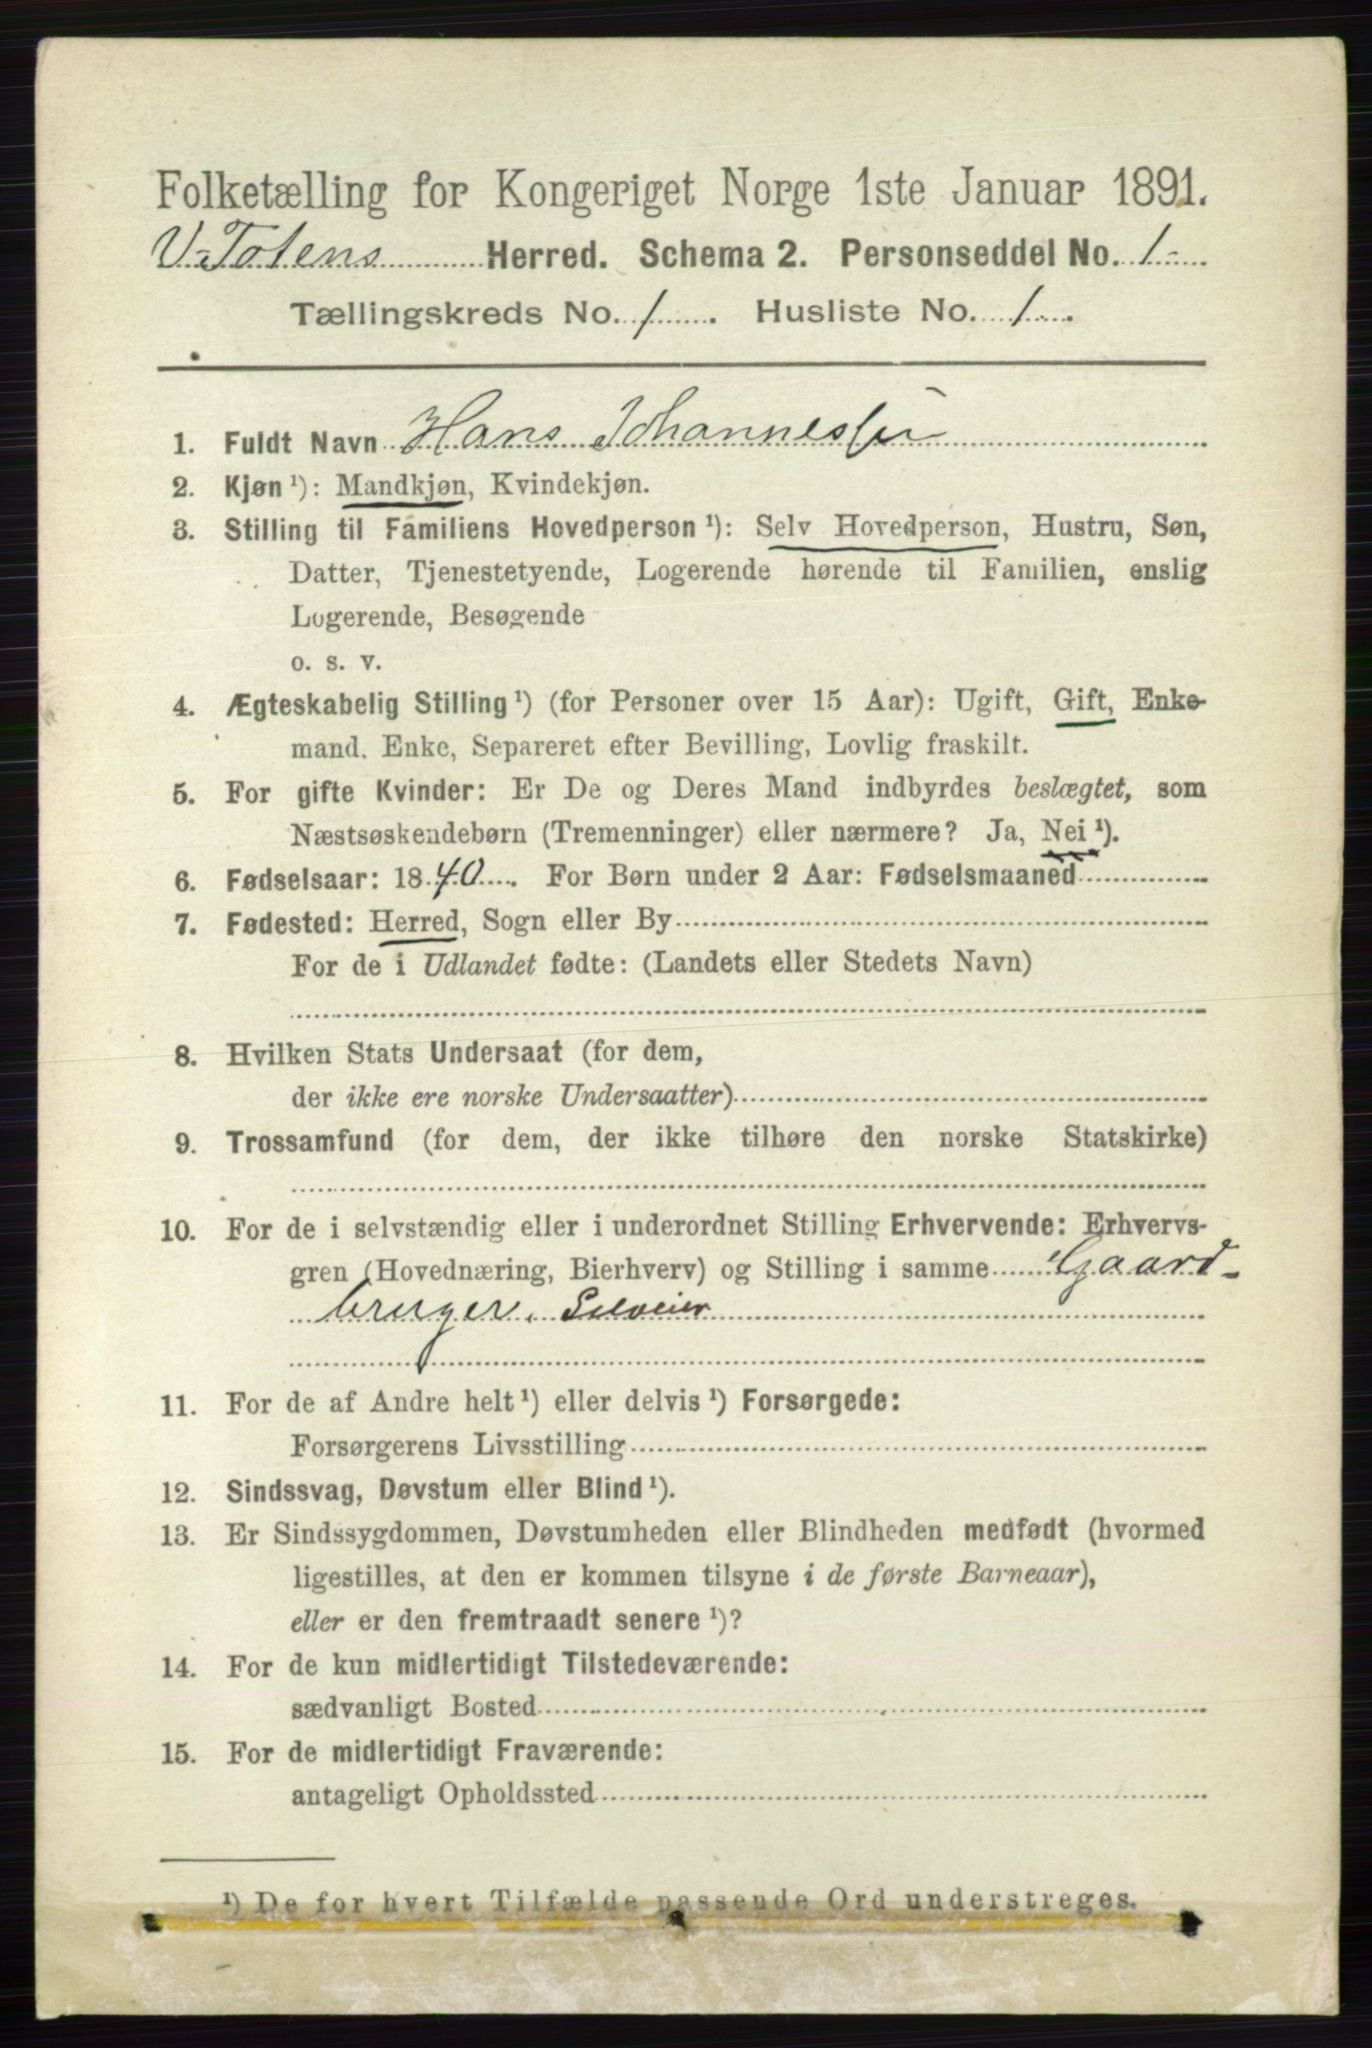 Folketælling for Kongeriget Norge 1ste Januar 1891.
V. Totens Herred. Schema 2. Personseddel No. 1
Tællingskreds No. 1. Husliste No. 1.
1. Fuldt Navn Hans Johannessen
2. Kjøn ¹): Mandkjøn, Kvindekjøn.
3. Stilling til Familiens Hovedperson ¹): Selv Hovedperson, Hustru, Søn,
Datter, Tjenestetyende, Logerende hørende til Familien, enslig
Logerende, Besøgende
o. s. v.
4. Ægteskabelig Stilling ¹) (for Personer over 15 Aar): Ugift, Gift, Enke-
mand, Enke, Separeret efter Bevilling, Lovlig fraskilt.
5. For gifte Kvinder: Er De og Deres Mand indbyrdes beslægtet, som
Næstsøskendebørn (Tremenninger) eller nærmere? Ja, Nei ¹).
6. Fødselsaar: 1840. For Børn under 2 Aar: Fødselsmaaned
7. Fødested: Herred, Sogn eller By
For de i Udlandet fødte: (Landets eller Stedets Navn)
8. Hvilken Stats Undersaat (for dem,
der ikke ere norske Undersaatter)
9. Trossamfund (for dem, der ikke tilhøre den norske Statskirke)
10. For de i selvstændig eller i underordnet Stilling Erhvervende: Erhvervs-
gren (Hovednæring, Bierhverv) og Stilling i samme Gaard-
bruger. Selveier
11. For de af Andre helt ¹) eller delvis ¹) Forsørgede:
Forsørgerens Livsstilling
12. Sindssvag, Døvstum eller Blind ¹).
13. Er Sindssygdommen, Døvstumheden eller Blindheden medfødt (hvormed
ligestilles, at den er kommen tilsyne i de første Barneaar),
eller er den fremtraadt senere ¹)?
14. For de kun midlertidigt Tilstedeværende:
sædvanligt Bosted
15. For de midlertidigt Fraværende:
antageligt Opholdssted
¹) De for hvert Tilfælde passende Ord understreges.